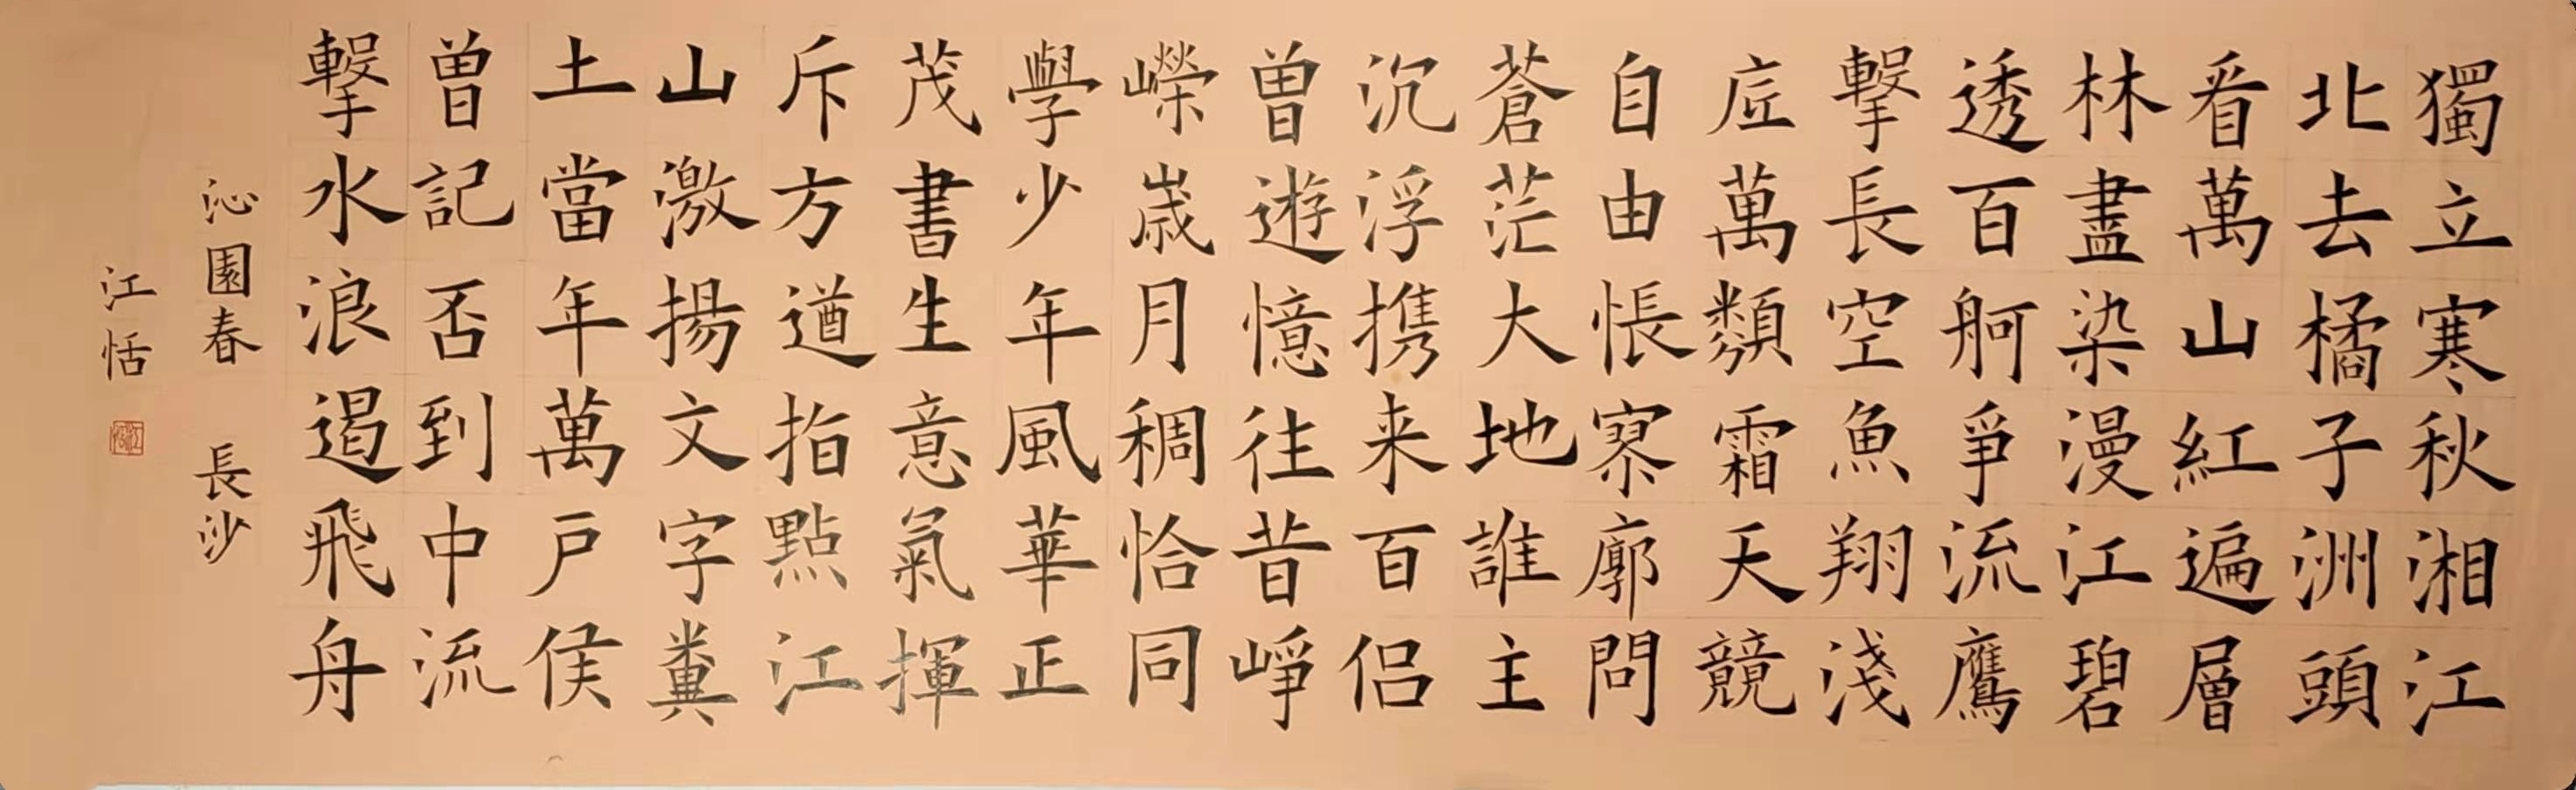 獨立寒秋湘江
北去橘子洲頭
看萬山紅遍層
林盡染漫江碧
透百舸爭流鷹
擊長空魚翔淺
底萬類霜天競
自由悵寥廓問
蒼茫大地誰主
沉浮携来百侣
曾遊憶往昔崢
嶸歲月稠恰同
學少年風華正
茂書生意氣揮
斥方遒指點江
山激揚文字糞
土當年萬戶侯
曾記否到中流
擊水浪遏飛舟
沁園春 長沙
江恬